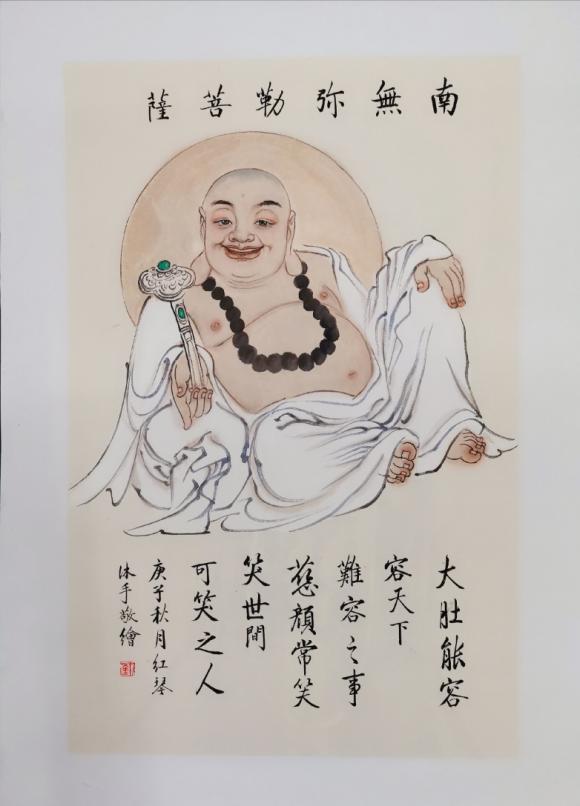 南無弥勒菩薩
大肚能容
容天下
難容之事
慈顔常笑
笑世間
可笑之人
庚子秋月红琴
沐手敬繪